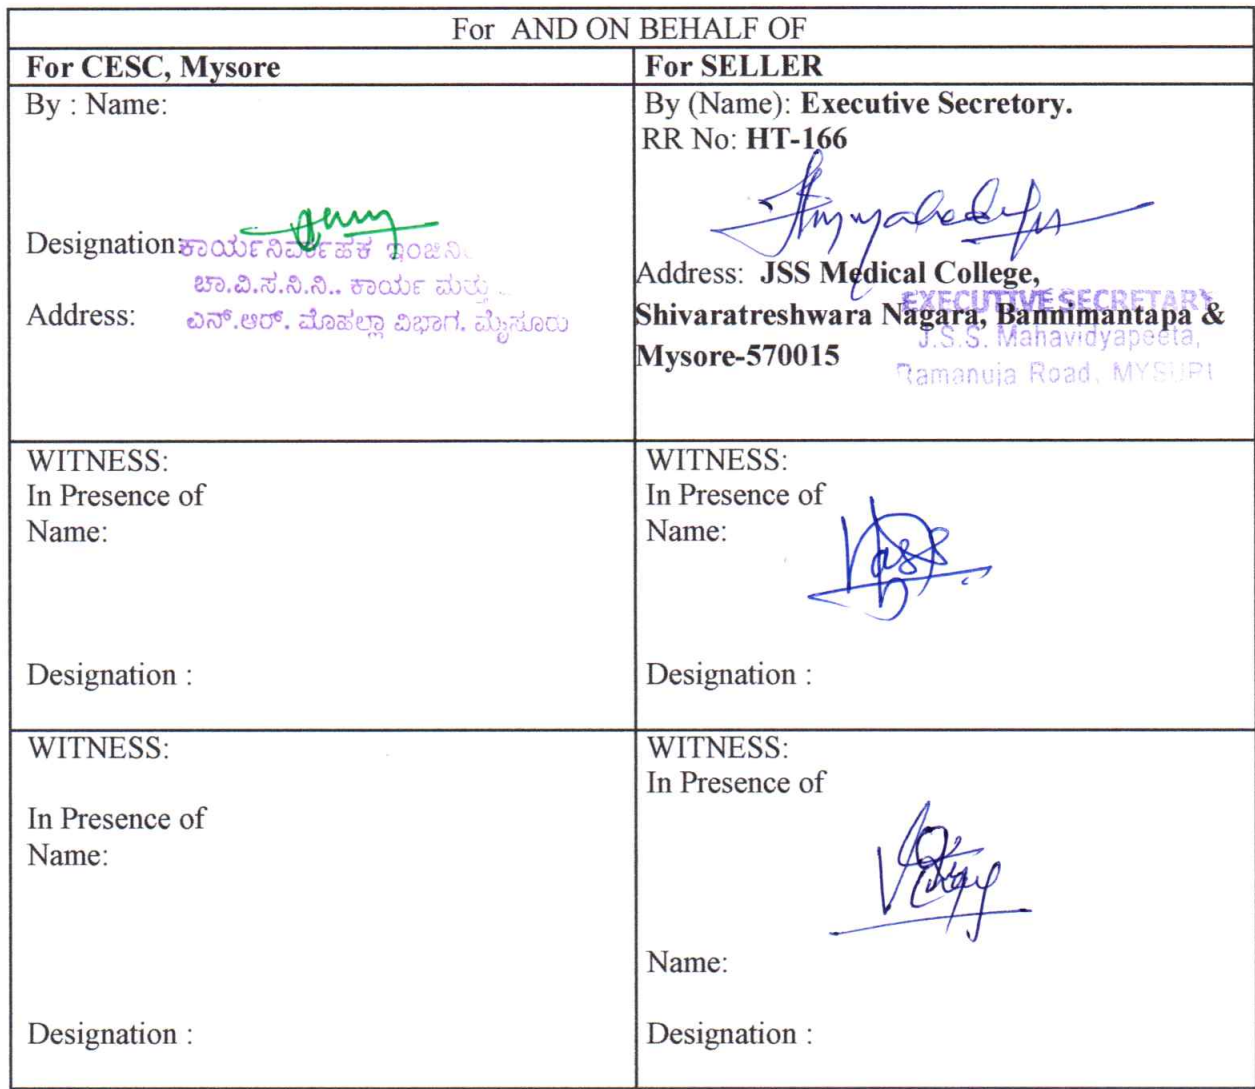 For AND ON BEHALF OF
For CESC, Mysore
For SELLER
By : Name:
By (Name): Executive Secretory.
RR No: HT-166
Designation:
ಕಾರ್ಯನಿರ್ವಾಹಕ
ಚಾ.ವಿ.ಸ.ನಿ.ನಿ.. ಕಾರ್ಯ ಮತ್ತು
Address:
ಎನ್.ಆರ್. ಮೊಹಲ್ಲಾ ವಿಭಾಗ, ಮೈಸೂರು
Address: JSS Medical College,
Shivaratreshwara Nagara, Bannimantapa &
Mysore-570015
EXECUTIVE SECRETARY
J.S.S. Mahavidyapeeta,
Ramanuja Road,
WITNESS:
In Presence of
Name:
Designation :
WITNESS:
In Presence of
Name:
Designation :
WITNESS:
In Presence of
Name:
Designation :
WITNESS:
In Presence of
Name:
Designation :